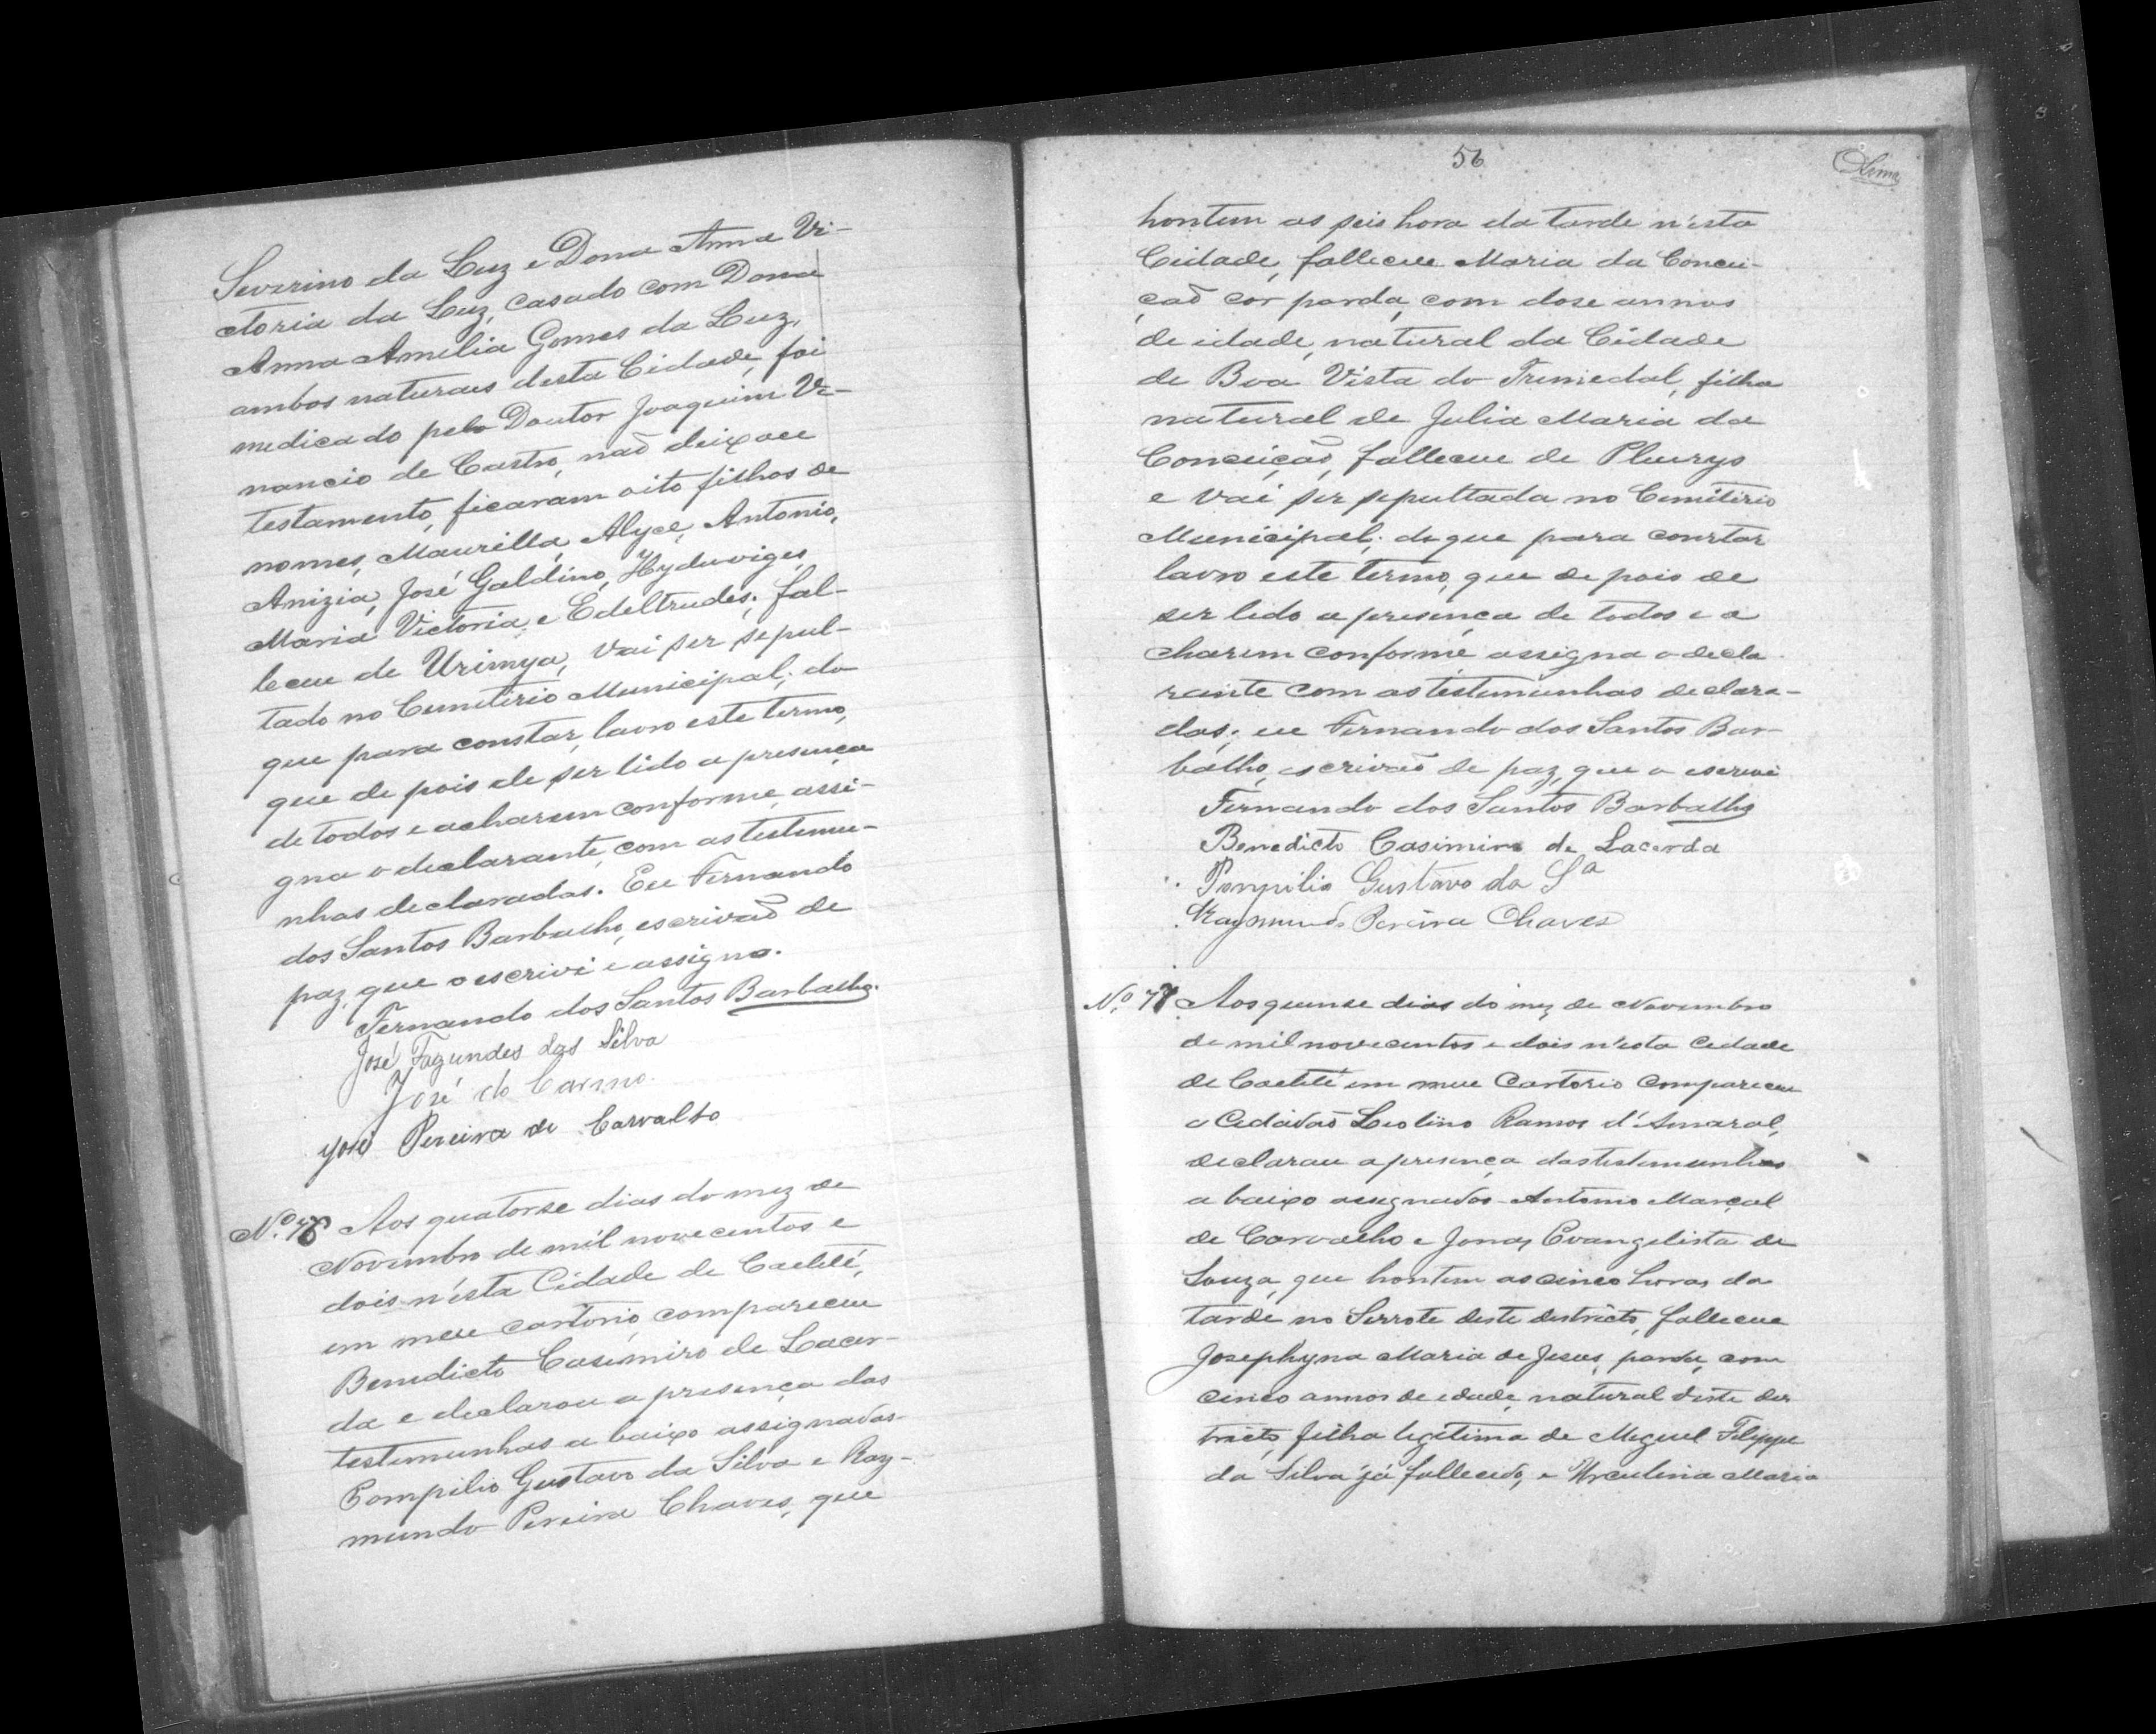 Severino da Luz e Dona Anna Vi-
ctoria da Luz, casado com Dona
Anna Amelia Gomes da Luz,
ambos naturaes desta Cidade, foi
medicado pelo Doutor Joaquim Ve-
nancio de Castro, naõ deixou
testamento, ficaram oito filhos de
nomes, Maurilla, Alyce, Antonio,
Anizia, José Galdino, Hyduviges,
Maria Victoria, e Edeltrudes; fal-
leceu de Urimya, vai ser sepul-
tado no Cemiterio Municipal; do
que para constar, lavro este termo,
que de pois de ser lido a presença
de todos e acharem conforme, assi-
gna o declarante, com as testemu-
nhas declaradas. Eu Fernando
dos Santos Barbalho, escrivaõ de
paz, que o escrivi e assigno.
Fernando dos Santos Barbalho.
José Fagundes das Silva
José do Carmo.
José Pereira de Carvalho
Nº. 76 Aos quatorse dias do mez de
Novembro de mil novecentos e
dois n'ésta Cidade de Caeteté,
em meu cartorio, compareceu
Benedicto Casimiro de Lacer-
da e declarou a presença das
testemunhas a baixo assignadas
Pompilio Gustavo da Silva e Ray-
mundo Pereira Chaves, que
56
hontem as seis hora da tarde n'ésta
Cidade, falleceu Maria da Concei-
çaõ cor parda, com dose annos
de idade, natural da Cidade
de Boa Vista do Tremedal, filha
natural de Julia Maria da
Conceiçaõ, falleceu de Pleurys
e vai ser sepultada no Cemiterio
Municipal; do que para constar
lavro este termo, que de pois de
ser lido a presença de todos e a
charem conforme assigna o decla
rante com as testemunhas declara-
das; eu Fernando dos Santos Bar-
balho, escrivaõ de paz, que o escrivi
Fernando dos Santos Barbalho
Benedicto Casimiro de Lacerda
Pompilio Gustavo da Sª
Raymundo Pereira Chaves
Nº. 77 Aos quinse dias do mez de Novembro
de mil novecentos e dois n'ésta Cidade
de Caeteté em meu Cartorio Compareceu
o Cidadaõ Leolino Ramos d'Amaral,
declarou a presença das testemunhas
a baixo assignados Antonio Marçal
de Carvalho e Jonas Evangelista de
Souza, que hontem as cinco horas da
tarde no Serrote deste districto, falleceu
Josephyna Maria de Jesus, parda, com
cinco annos de edade, natural deste des
tricto, filha legitima de Miguel Filippe
da Silva já fallecido, e Herculina Maria